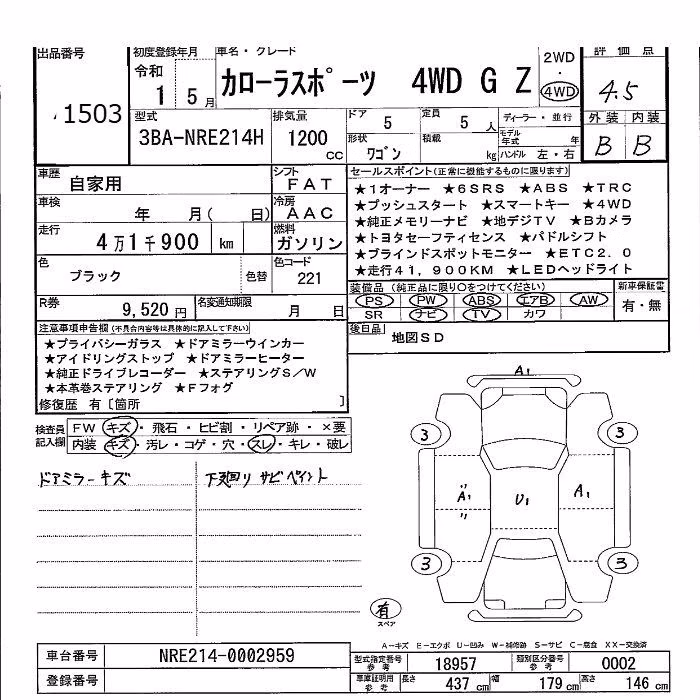 出品番号
1503
初度登録年月
令和
1 5月
車名・グレード
カローラスポーツ 4WD G Z
2WD
・
4WD
評価点
4.5
外装 内装
B B
型式
3BA-NRE214H
排気量
1200
cc
ドア
5
定員
5 人
ディーラー・並行
形状
ワゴン
積載
kg
モデル年式 年
ハンドル 左・右
車歴
自家用
シフト
FAT
車検
年 月( 日)
冷房
AAC
走行
4万1千900 km
燃料
ガソリン
色
ブラック
色替
色コード
221
R券
9,520円
名変通知期限
月 日
セールスポイント(正常に機能するものに限ります)
★1オーナー ★6SRS ★ABS ★TRC
★プッシュスタート ★スマートキー ★4WD
★純正メモリーナビ ★地デジTV ★Bカメラ
★トヨタセーフティセンス ★パドルシフト
★ブラインドスポットモニター ★ETC2.0
★走行41,900KM ★LEDヘッドライト
装備品 (純正品に限り○をつけてください)
PS PW ABS エアB AW
SR ナビ TV カワ
新車保証書
有・無
後日品
地図SD
注意事項申告欄(不具合内容等は具体的に記入して下さい)
★プライバシーガラス ★ドアミラーウインカー
★アイドリングストップ ★ドアミラーヒーター
★純正ドライブレコーダー ★ステアリングS/W
★本革巻ステアリング ★Fフォグ
修復歴 有 [箇所 ]
検査員記入欄
FW キズ・飛石・ヒビ割・リペア跡・×要
内装 キズ・汚レ・コゲ・穴・スレ・キレ・破レ
ドアミラーキズ
下廻り サビ ペイント
A1
3 3
A1 U1 A1
3 3
有
スペア
A-キズ E-エクボ U-凹み W-補修跡 S-サビ C-腐食 XX-交換済
車台番号
NRE214-0002959
登録番号
型式指定番号 参考
18957
類別区分番号 参考
0002
車庫証明用 参考
長さ 437 cm
幅 179 cm
高さ 146 cm